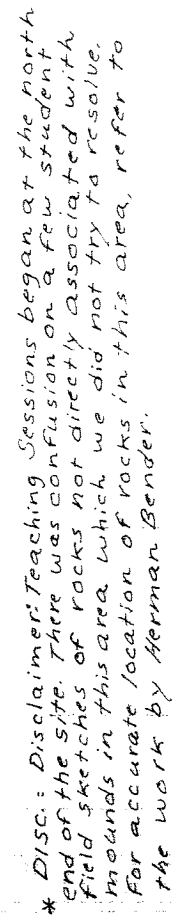 * DISC.: Disclaimer: Teaching Sessions began at the north
end of the site. There was confusion on a few student
field sketches of rocks not directly associated with
mounds in this area which we did not try to resolve.
For accurate location of rocks in this area, refer to
the work by Herman Bender.